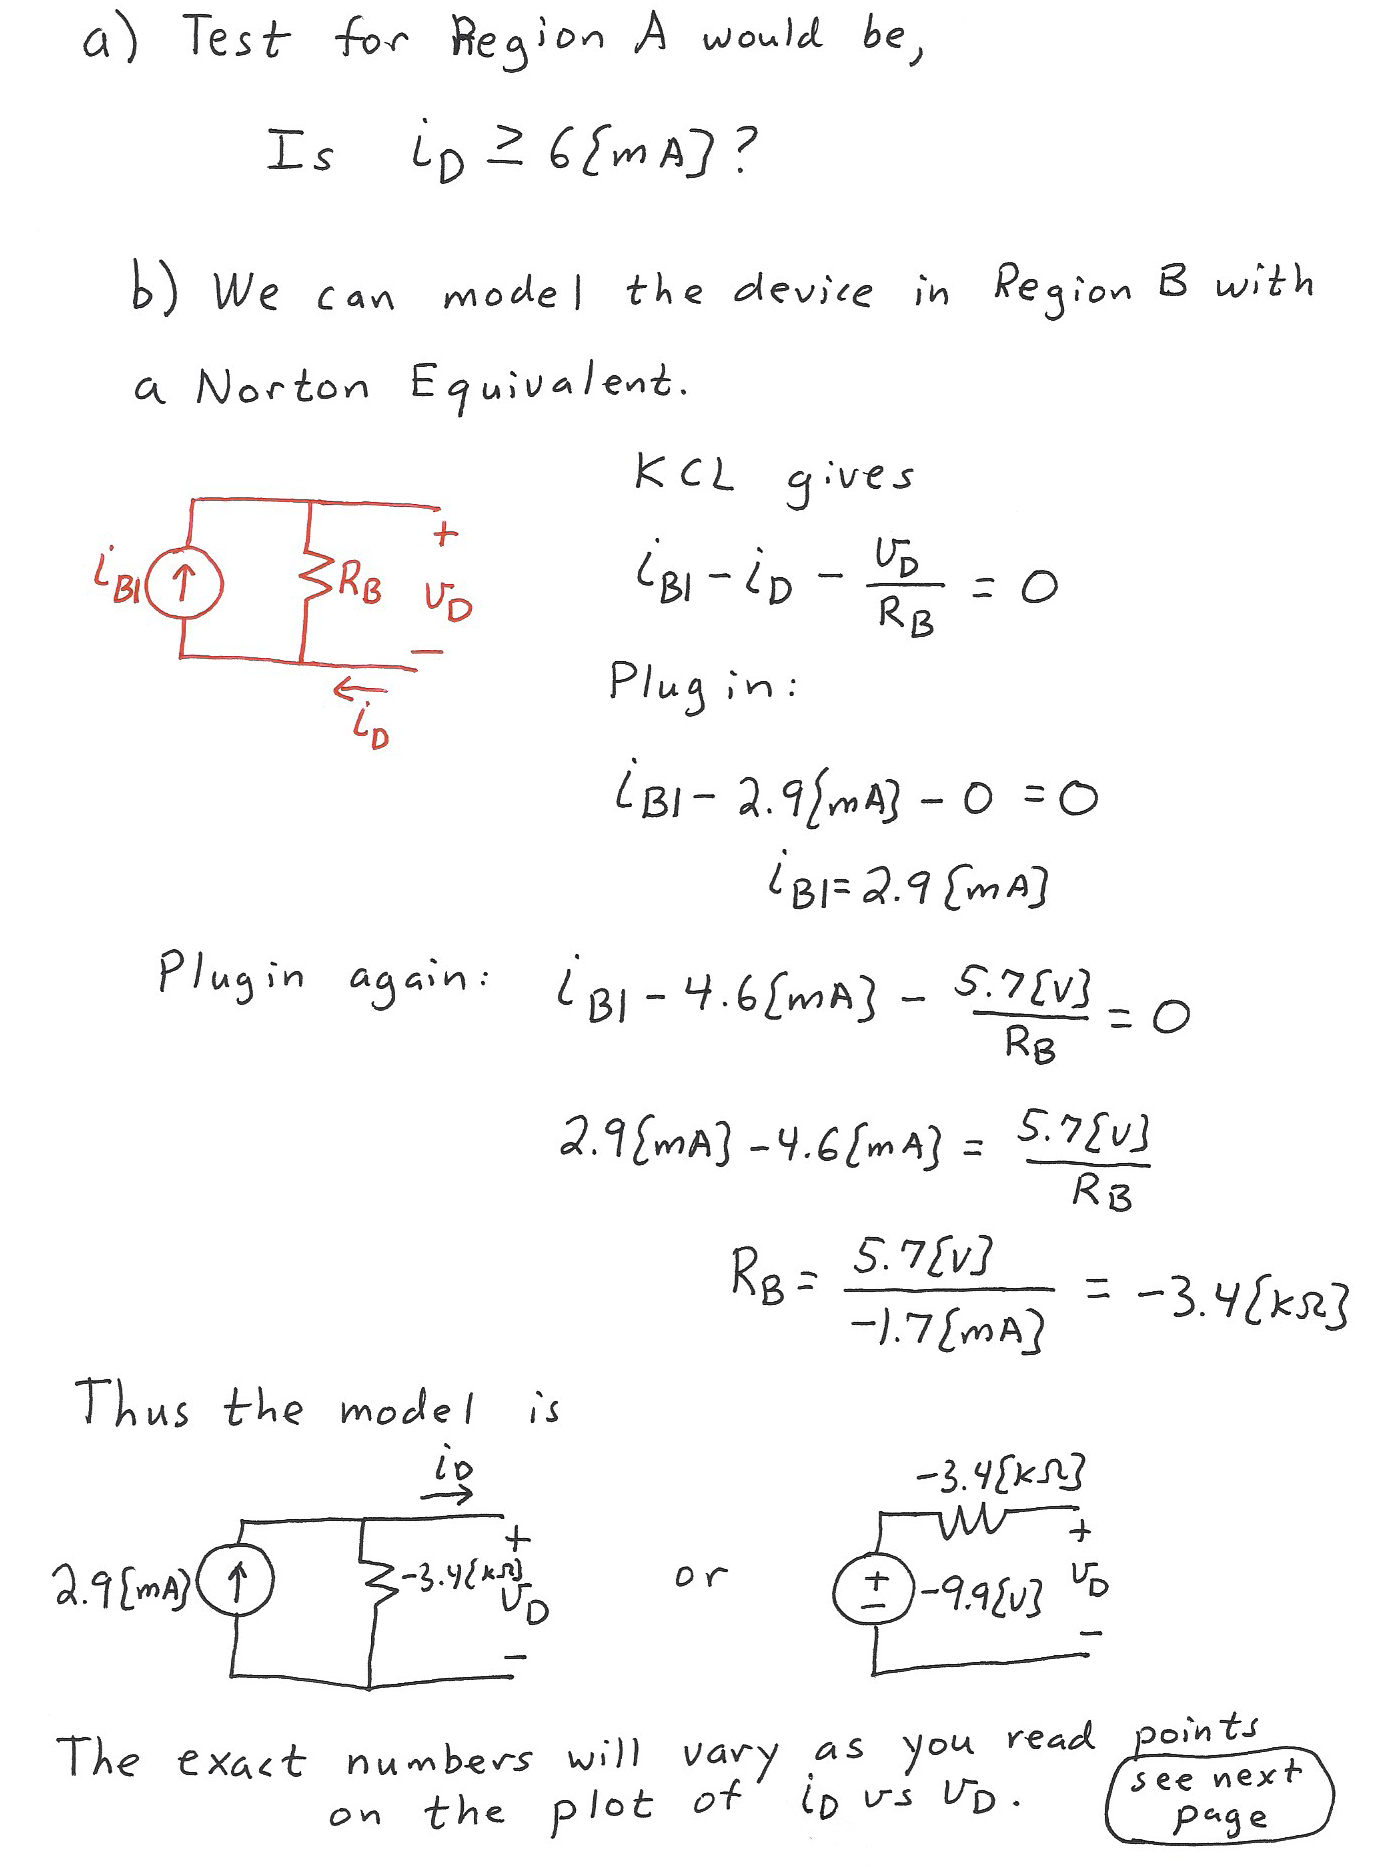 a) Test for Region A would be,
Is iD ≥ 6[mA]?
b) We can model the device in Region B with
a Norton Equivalent.
KCL gives
iB1 - iD - vD/RB = 0
iB1
RB
+
vD
-
iD
Plug in:
iB1 - 2.9[mA] - 0 = 0
iB1 = 2.9[mA]
Plug in again: iB1 - 4.6[mA] - 5.7[V]/RB = 0
2.9[mA] - 4.6[mA] = 5.7[V]/RB
RB = 5.7[V]/-1.7[mA] = -3.4[kΩ]
Thus the model is
iD
2.9[mA]
-3.4[kΩ]
+
vD
-
or
-3.4[kΩ]
+
-
-9.9[V]
+
vD
-
The exact numbers will vary as you read points
on the plot of iD vs vD.
see next
page